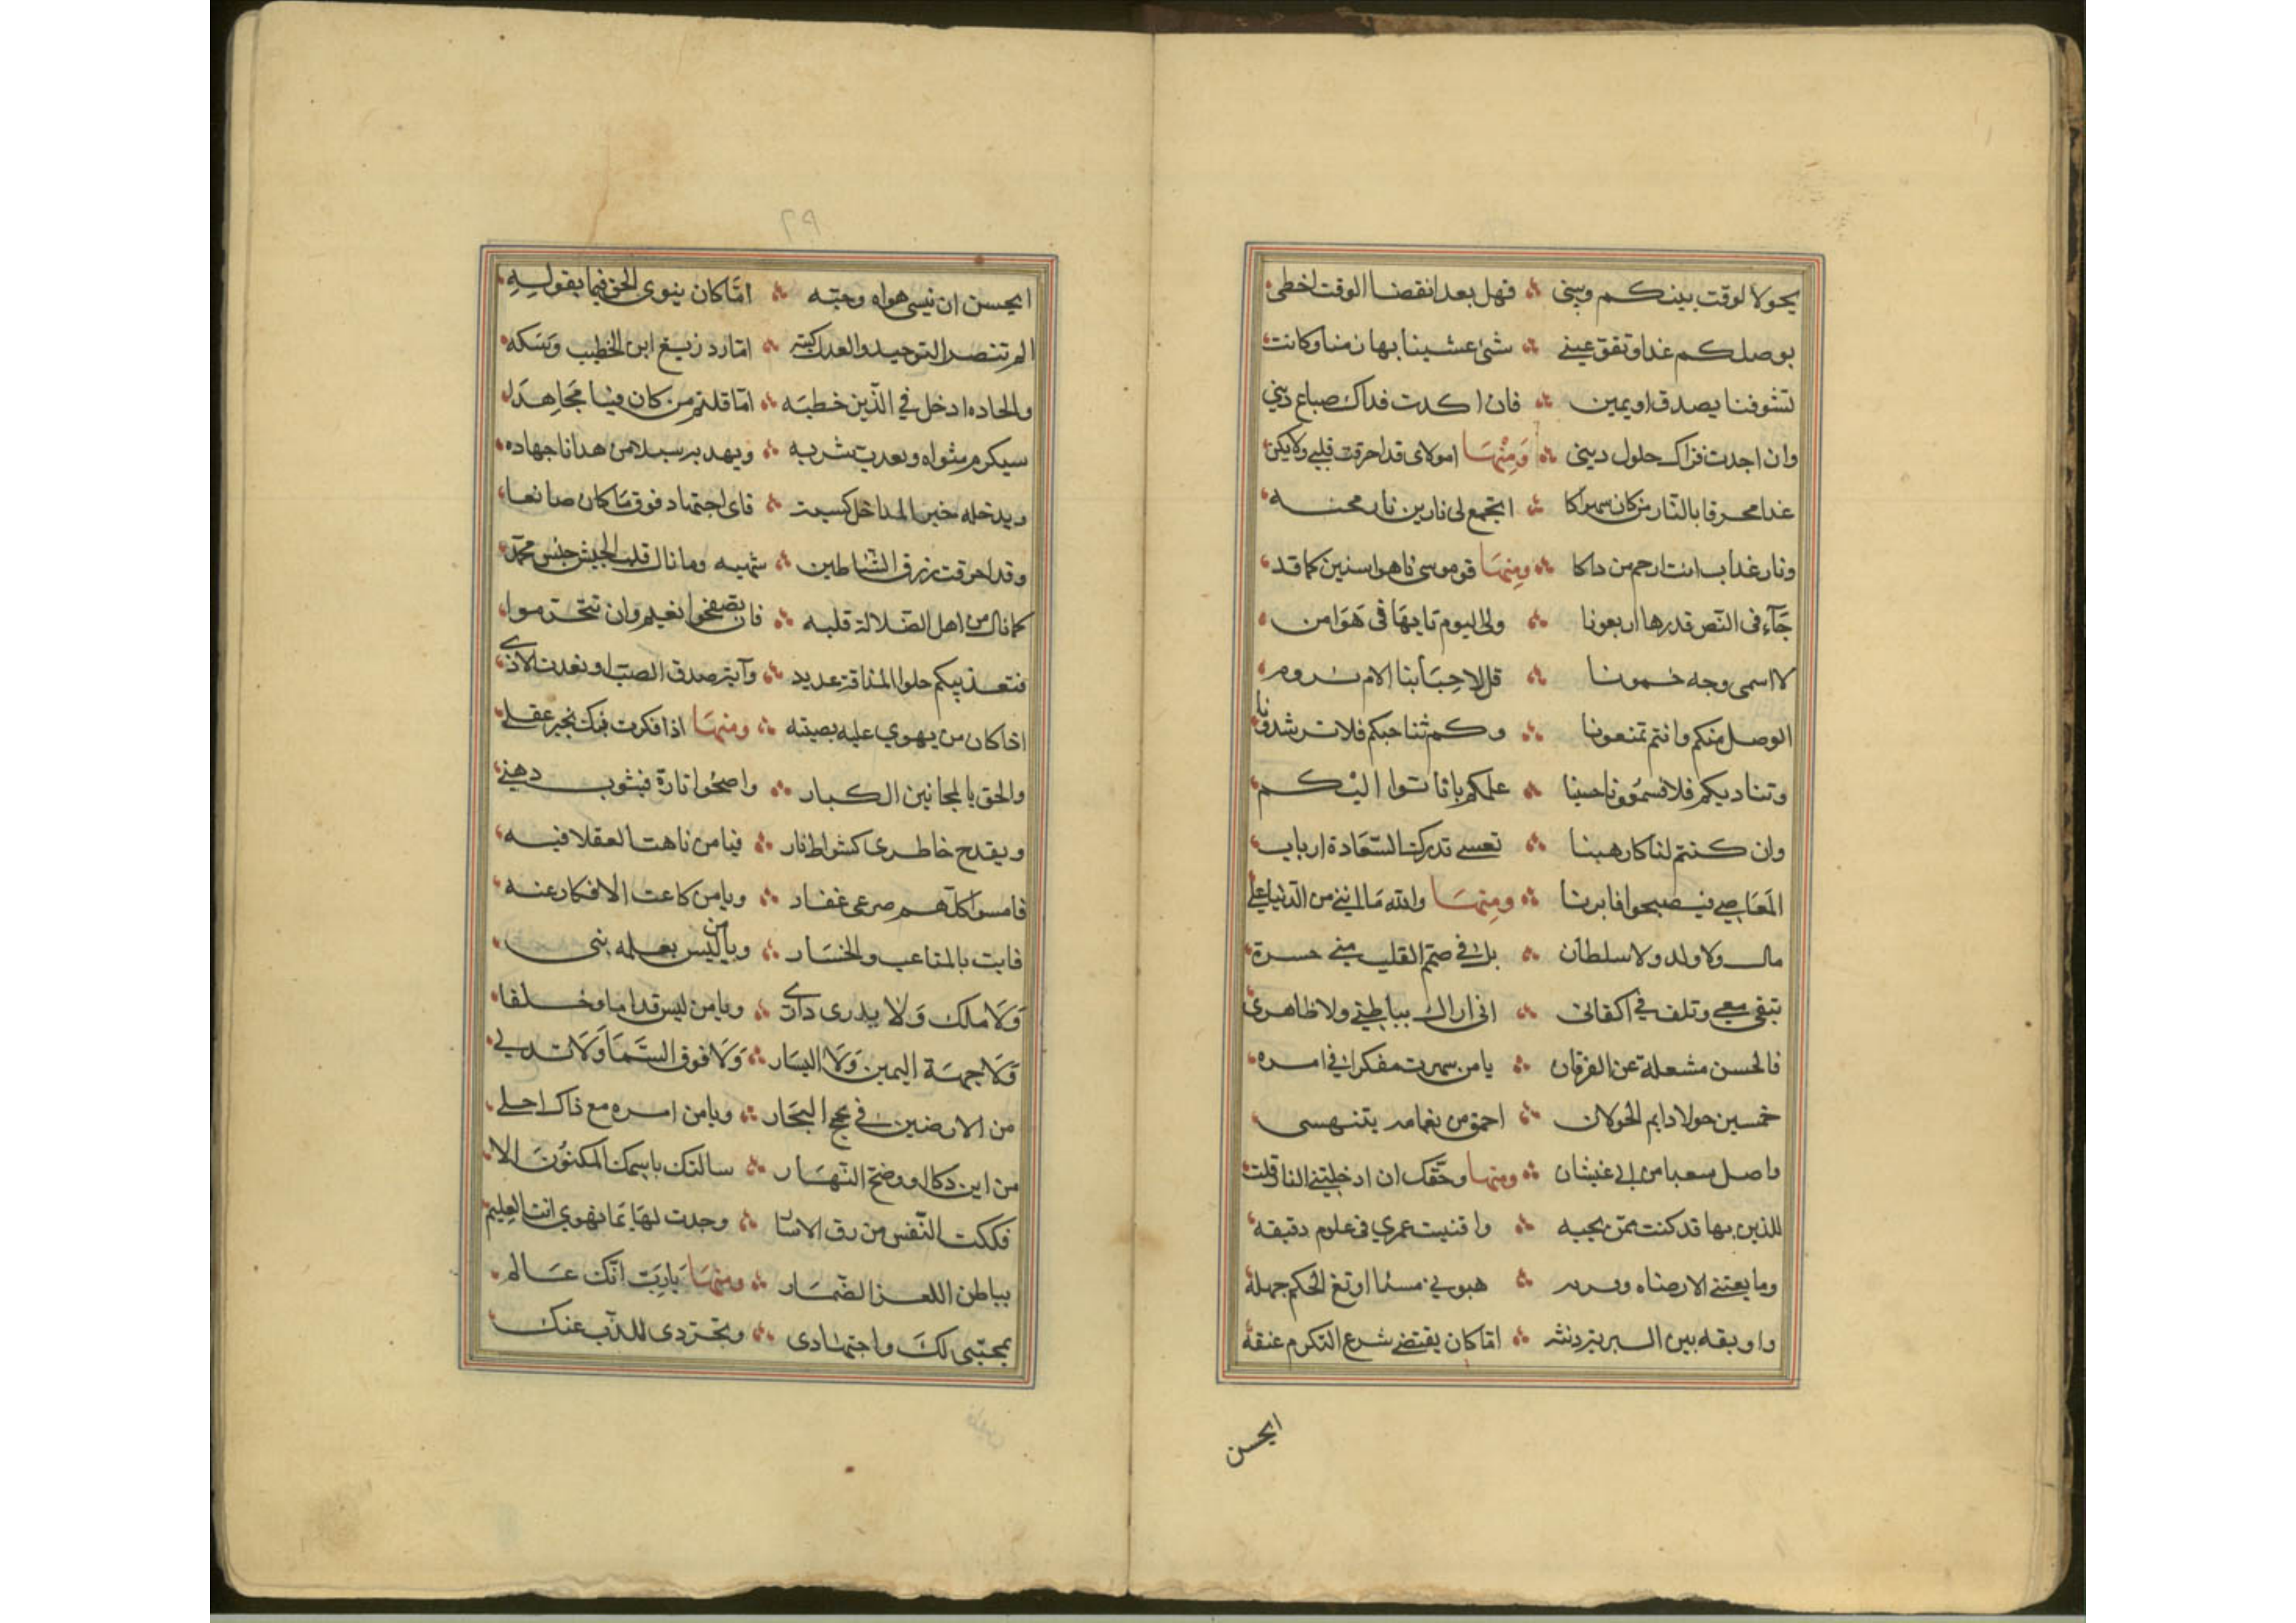 يحولا لوقت بينكم وبيني فهل بعد انقضا الوقت اخطى
بوصلكم غدا وتفق عيني شئ عشينا بها زمنا وكانت
تشوفنا يصدق او يمين فان اكدت فذاك ضياع ديني
وان اجدت فذاك حلول ديني ومنها امولاى قد احرقت قلبي ولا يكن
غدا محرقا بالنار من كان يهواكا اتجمع لى نارين نار محبه
ونار عذاب انت ارحم من ذاكا ومنها قوم موسى تاهوا سنين كما قد
جآء فى النص قدرها اربعونا ولى اليوم تايها فى هوا من
لا اسمى وجه خمسونا قل لاحبابنا الام نروم
الوصل منكم وانتم تمنعونا وكم ثنا حبكم فلا ترشدونا
وتناديكم فلا تسمعونا حسبنا علمكم باننا اليكم
وان كنتم لنا كارهينا فعسى تدرك السعادة ارباب
المعاصى فيصبحوا فايزينا ومنها والله ما اسفي من الدنيا على
مال ولا ولد ولا سلطان بل في صميم القلب مني حسرة
تبقى معي وتلف في اكفانى انى اراك بباطني ولا ظاهرى
فالحسن مشعلة عن الفرقان يا من سهرت مفكرا في امره
خمسين حولا دايم الجولان احمق من نعامه
واصل من ابي غبشان ومنها وحقك ان ادخلتني النار قلت
للذين بها قد كنت ممن يحبه وافنيت عمري فى علوم دقيقه
وما بغيتي الا رضاه وقربه هبوني مسئا اوتغ الحكم جهله
واوبقه بين البرية ذنبه اما كان يقتضي شرع التكرم عتقه
ايحسن
ايحسن ان ينسى هواه وحبه اما كان ينوى الحق فيما يقوله
الم تنصر التوحيد والعدل كتبه اما رد زيغ ابن الخطيب وشكه
والحاده اذ دخل في الدين خطبه اما قلتم من كان فينا مجاهدا
سيكرم مثواه ويعذب شربه ويهد به سبلا من هدانا جهاده
ويدخله خير المداخل كسبه فاى اجتهاد فوق ما كان صانعا
وقد احرقت زرق الشياطين شهبه وما نال قلب الجيش جيش محمد
كما نال من اهل الضلالة قلبه فان تصفحوا نغنم وان تتجرموا
فتعذيبكم حلو المذاقة عذبه وآية صدق الصب ان يعذب الاذى
اذا كان من يهوي عليه يصبه ومنها اذا فكرت فيك يحير عقلي
والحق بالمجانين الكبار واصحوا تارة فيثوب ذهني
ويقدح خاطرى كشواظ نار فيا من تاهت العقلا فيه
فامسوا كلهم صرعى عقار ويا من كاعت الافكار عنه
فابت بالمتاعب والخسار ويا من ليس يعلمه نبى
ولا ملك ولا يدرى دارى ويا من ليس قداما وخلفا
ولا جهة اليمين ولا اليسار ولا فوق السما ولا تدلي
من الارضين في لجج البحار ويا من امره مع ذاك اجلى
من ابن ذكا او وضح النهار سالتك باسمك المكنون الا
فككت النفس من رق الاسار وجدت لها بما تهوي انت العليم
بباطن اللغز الضمار ومنها يا رب انك عالم
بمحبتى لك واجتهادى وتجردى للذب عنك